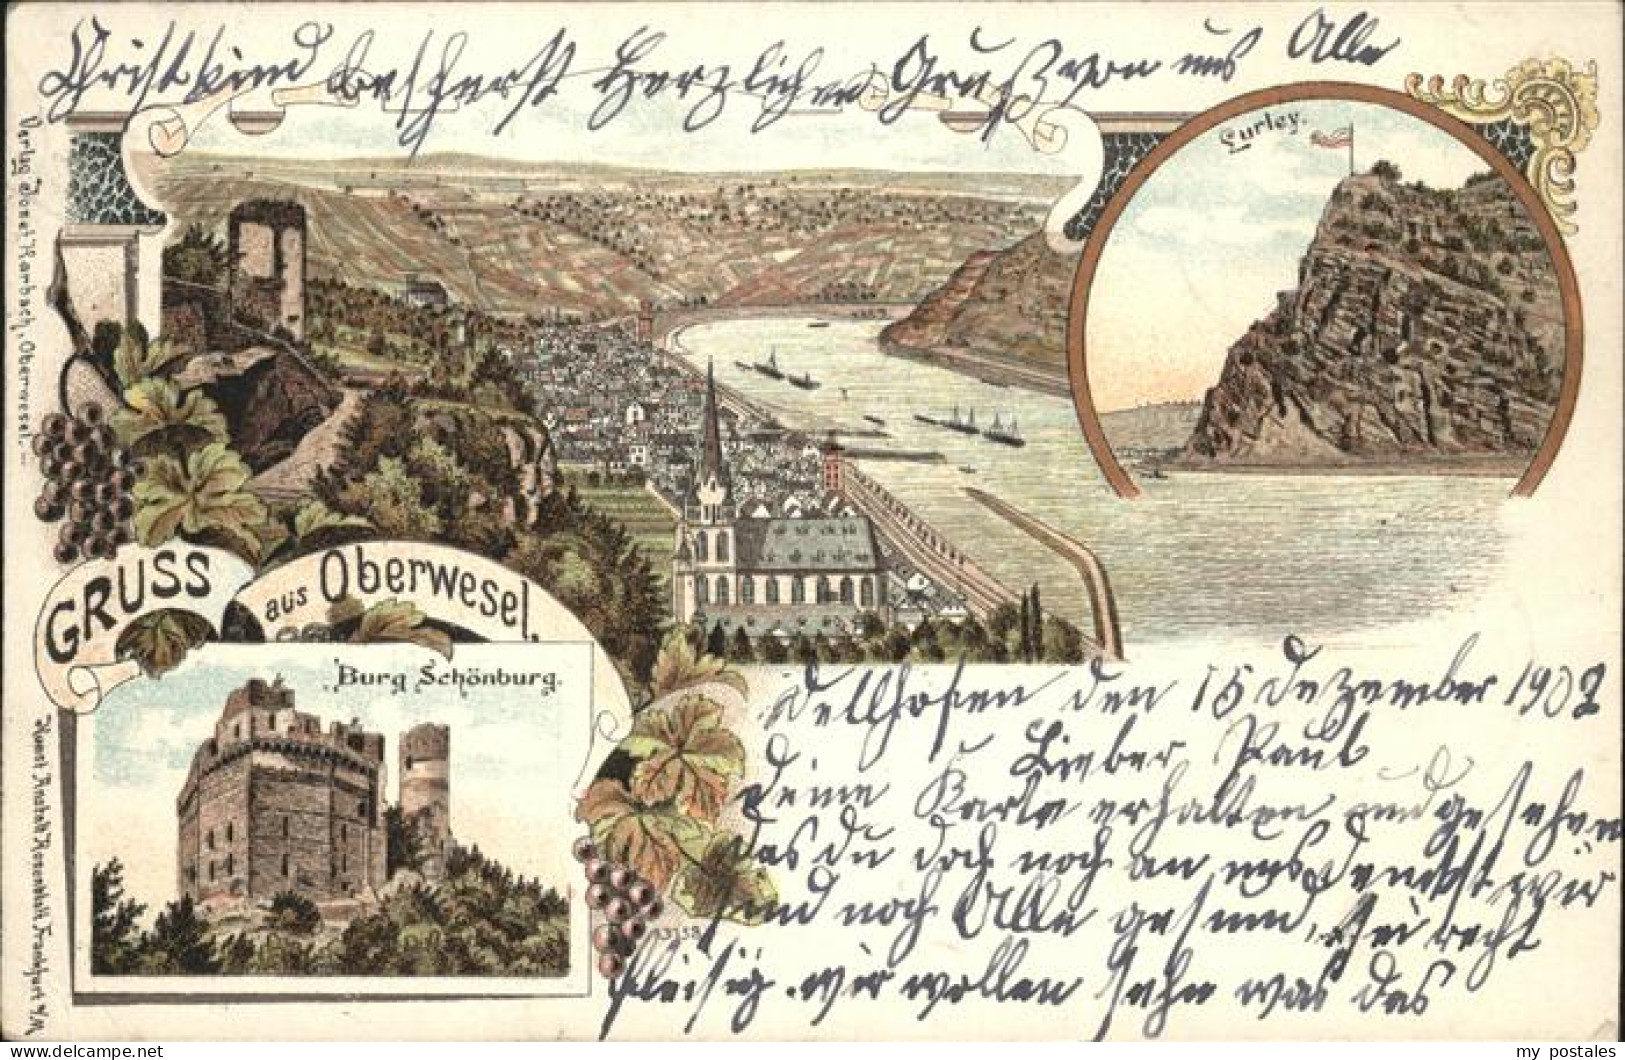 Christkind bescherst Herzlichen Gruß von uns Alle
Lurley.
Verlag Donat Karbach, Oberwesel.
GRUSS
aus Oberwesel.
Burg Schönburg.
Kunst Anstalt Rosenblatt Frankfurt a/M
13138
Dellhofen den 15 Dezember 1902
Lieber Paul
deine Karte erhalten und gesehen
das du doch noch an uns denkst, wir
sind noch Alle gesund, sei recht
fleisig. wir wollen sehn was das
my postales